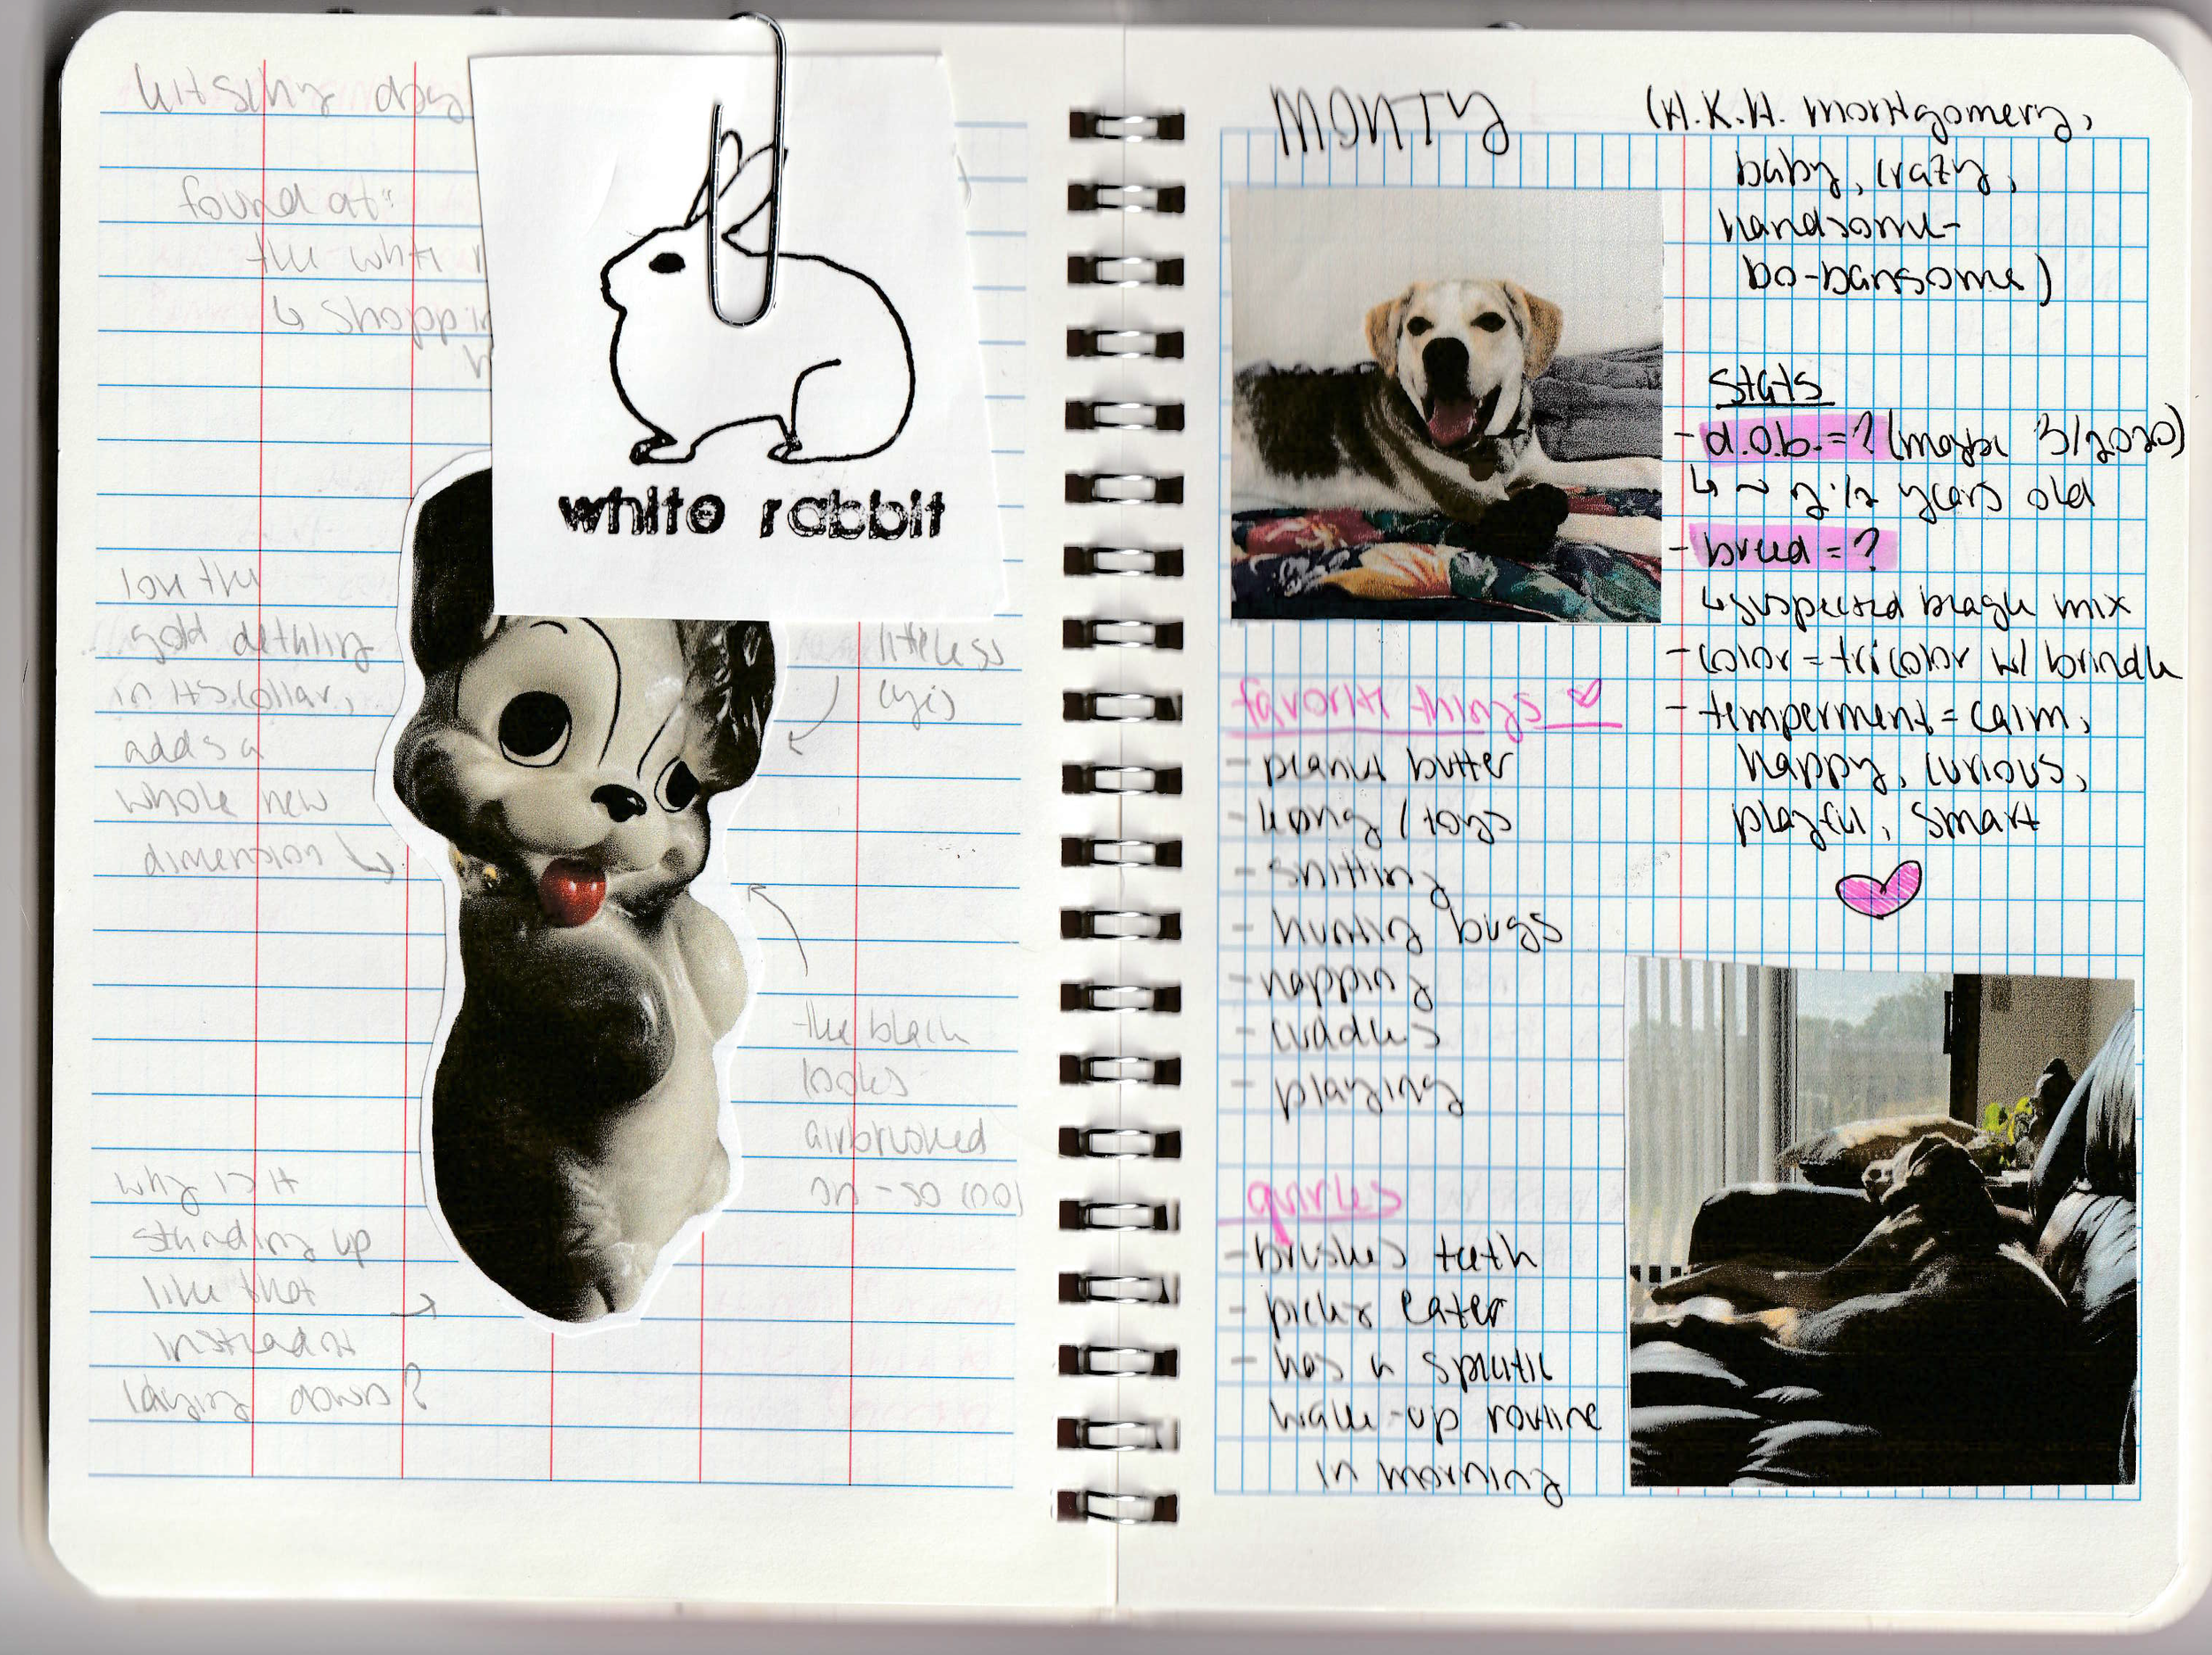 kitschy dog
found at:
the white r
↳ shoppin
white rabbit
love the
gold detailing
in its collar,
adds a
whole new
dimension
lifeless
eyes
the black
looks
airbrushed
on - so cool
why is it
standing up
like that
instead of
laying down?
MONTY
(A.K.A. montgomery,
baby, crazy,
handsome-
bo-bansome)
stats
- d.o.b. = ? (maybe 3/2020)
↳ ~ 2 1/2 years old
- breed = ?
↳ suspected beagle mix
- color = tricolor w/ brindle
- temperment = calm,
happy, curious,
playful, smart
favorite things ♡
- peanut butter
- kong / toys
- sniffing
- hunting bugs
- napping
- cuddles
- playing
quirks
- brushes teeth
- picky eater
- has a specific
wake-up routine
in morning